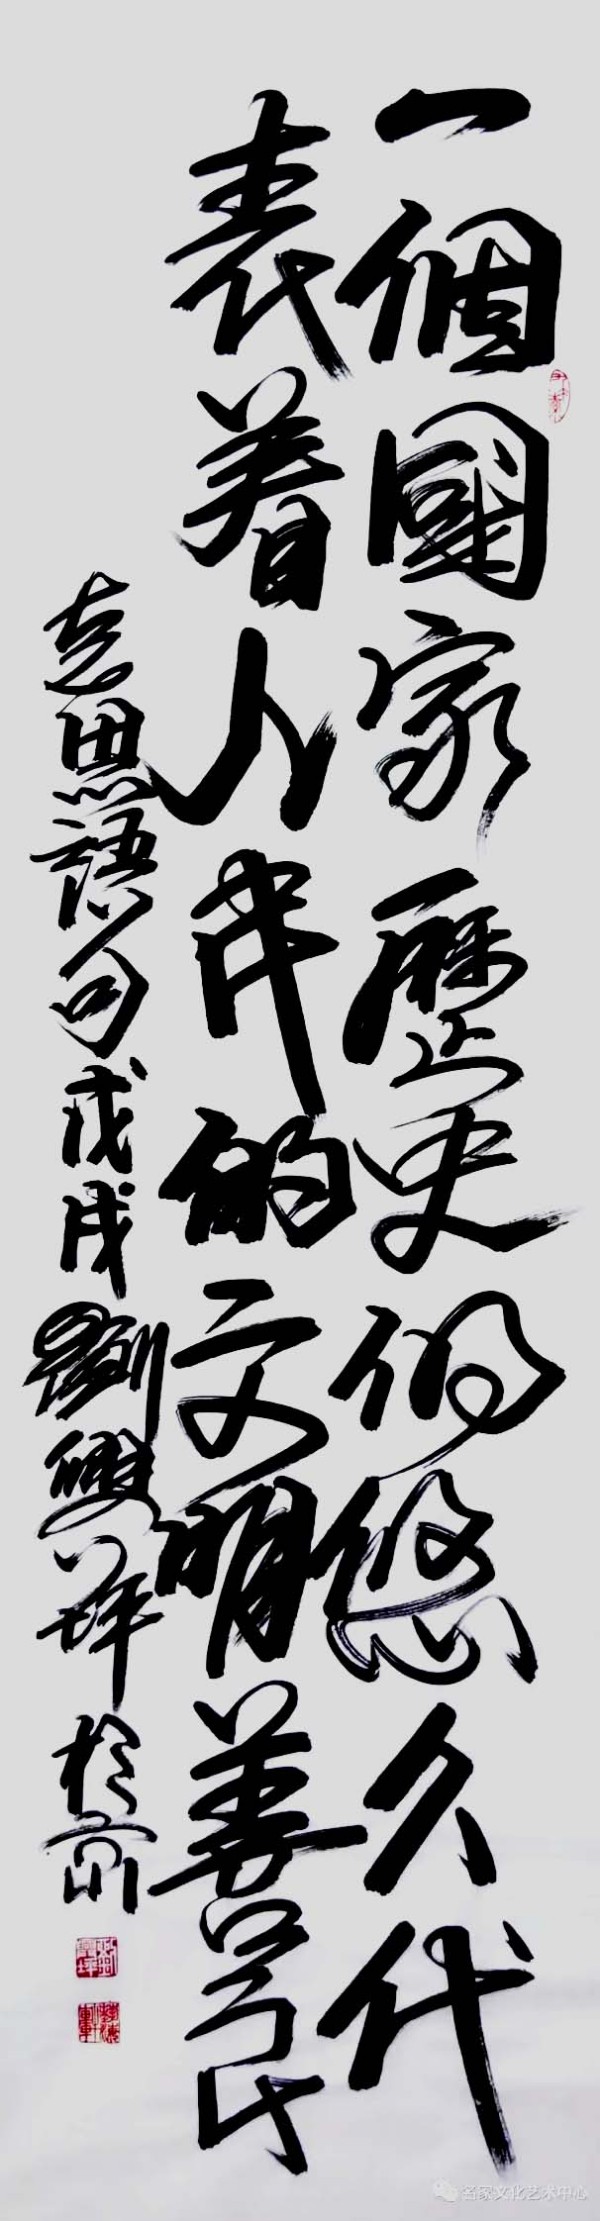 一個國家歷史的悠久代
表着人民的文明善
思語句戊戌劉雙坪於
名家文化艺术中心